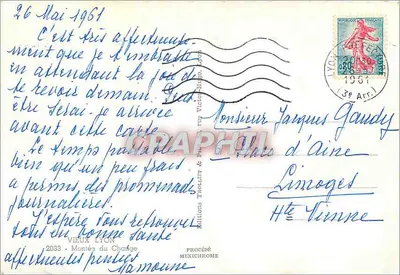 26 Mai 1961
C'est très affectueuse-
ment que je t'embrasse
en attendant la joie de
te revoir demain. Peut
être serai-je arrivée
avant cette carte.
Le temps passable
bien qu'un peu frais
a permis des promenades
journalières.
J'espère vous retrouver
tous en bonne santé
affectueuses pensées
Mamoune
VIEUX LYON
2033 - Montée du Change
PROCÉDÉ
MEXICHROME
Monsieur Jacques Gaudy
Place d'Aine
Limoges
Hte Vienne
LYON
1961
(3e Arr.)
CPAPHIL